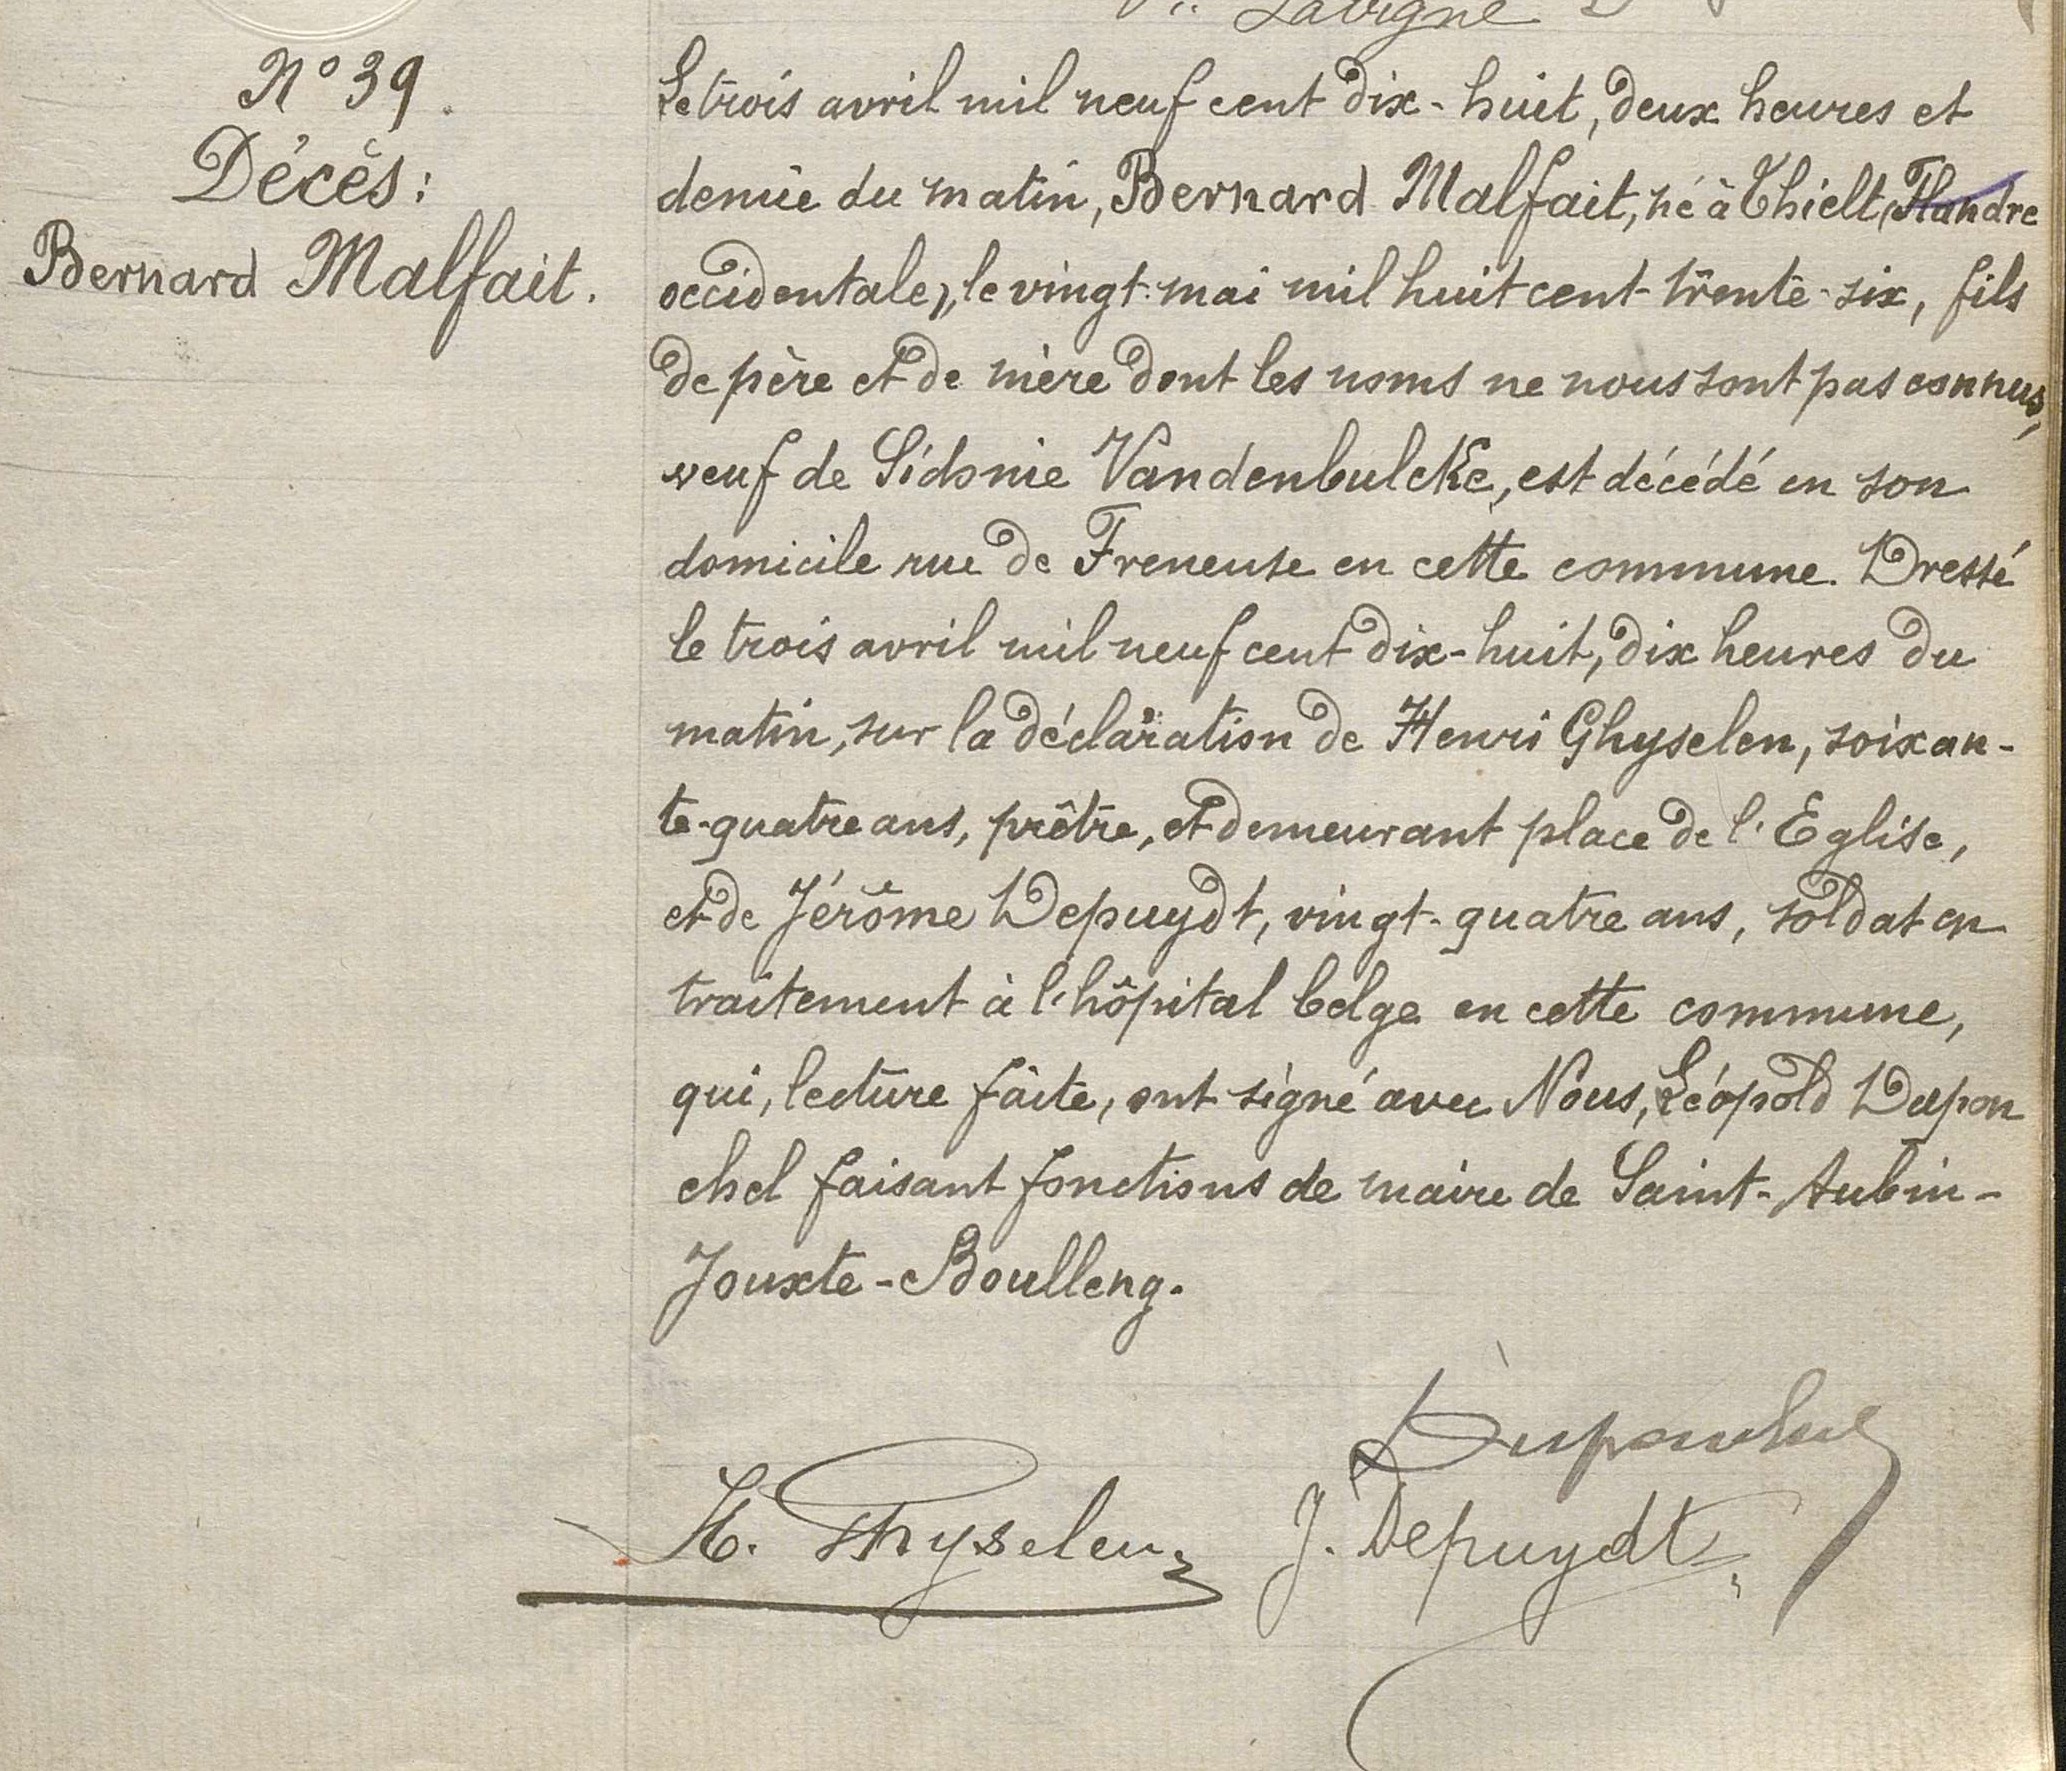 Lavigne
N° 39
Décès:
Bernard Malfait.
Le trois avril mil neuf cent dix-huit, deux heures et
demie du matin, Bernard Malfait, né à Thielt (Flandre
occidentale), le vingt mai mil huit cent trente-six, fils
de père et de mère dont les noms ne nous sont pas connus,
veuf de Sidonie Vandenbulcke, est décédé en son
domicile rue de Freneuse en cette commune. Dressé
le trois avril mil neuf cent dix-huit, dix heures du
matin, sur la déclaration de Henri Ghyselen, soixan-
te-quatre ans, prêtre, et demeurant place de l'Eglise,
et de Jérôme Depuydt, vingt-quatre ans, soldat en
traitement à l'hôpital belge en cette commune,
qui, lecture faite, ont signé avec Nous, Léopold Dupon
chel faisant fonctions de maire de Saint-Aubin-
Jouxte-Boulleng.
Duponchel
H. Ghyselen J. Depuydt